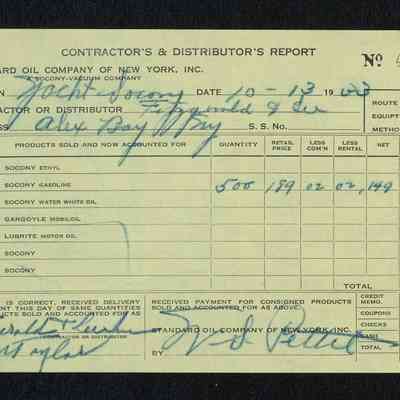 CONTRACTOR'S & DISTRIBUTOR'S REPORT
No
ARD OIL COMPANY OF NEW YORK, INC.
A SOCONY-VACUUM COMPANY
Yacht Socony DATE 10-13 1933
ROUTE
ACTOR OR DISTRIBUTOR Fitzgerald & Lee
EQUIPT
SS Alex Bay NY S. S. No.
METHOD
PRODUCTS SOLD AND NOW ACCOUNTED FOR QUANTITY RETAIL PRICE LESS COM'N LESS RENTAL NET
SOCONY ETHYL
SOCONY GASOLINE 500 189 02 02 149
SOCONY WATER WHITE OIL
GARGOYLE MOBILOIL
LUBRITE MOTOR OIL
SOCONY
SOCONY
TOTAL
IS CLEAR, RECEIVED DELIVERY
ENT THIS DAY OF SAME QUANTITIES
UCTS SOLD AND ACCOUNTED FOR AS
RECEIVED PAYMENT FOR CONSIGNED PRODUCTS
SOLD AND ACCOUNTED FOR AS ABOVE.
CREDIT MEMO.
COUPONS
CHECKS
CASH
TOTAL
CONTRACTOR OR DISTRIBUTOR
Taylor
STANDARD OIL COMPANY OF NEW YORK, INC.
BY W S Pettit